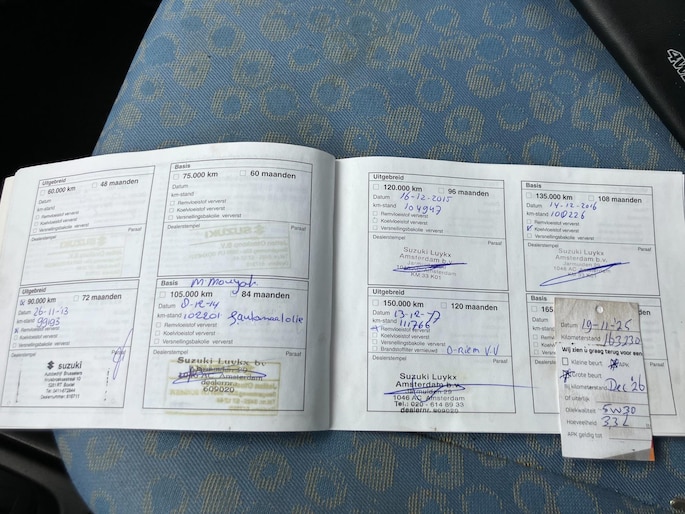 Uitgebreid
60.000 km 48 maanden
Datum
km-stand
Remvloeistof ververst
Koelvloeistof ververst
Versnellingsbakolie ververst
Dealerstempel Paraaf
SUZUKI
Basis
75.000 km 60 maanden
Datum
km-stand
Remvloeistof ververst
Koelvloeistof ververst
Versnellingsbakolie ververst
Dealerstempel Paraaf
SUZUKI
Uitgebreid
90.000 km 72 maanden
Datum 26-11-13
km-stand 99193
Remvloeistof ververst
Koelvloeistof ververst
Versnellingsbakolie ververst
Dealerstempel Paraaf
SUZUKI
Autobedrijf Brussers
Basis
105.000 km 84 maanden
Datum 8-12-14
km-stand 102201
Remvloeistof ververst
Koelvloeistof ververst
Versnellingsbakolie ververst
Dealerstempel Paraaf
Suzuki Luykx b.v.
1046 AC Amsterdam
dealernr.
609020
Uitgebreid
120.000 km 96 maanden
Datum 16-12-2015
km-stand 104947
Remvloeistof ververst
Koelvloeistof ververst
Versnellingsbakolie ververst
Dealerstempel Paraaf
Suzuki Luykx
Amsterdam b.v.
Basis
135.000 km 108 maanden
Datum 14-12-2016
km-stand 108226
Remvloeistof ververst
Koelvloeistof ververst
Versnellingsbakolie ververst
Dealerstempel Paraaf
Suzuki Luykx
Amsterdam b.v.
Uitgebreid
150.000 km 120 maanden
Datum 13-12-17
km-stand 111766
Remvloeistof ververst
Koelvloeistof ververst
Versnellingsbakolie ververst
Brandstoffilter vernieuwd
Dealerstempel Paraaf
Suzuki Luykx
Amsterdam b.v.
1046 AC Amsterdam
Tel.: 020 - 614 89 33
dealernr. 609020
Basis
Datum 19-11-25
kilometerstand 163230
Wij zien u graag terug voor een
Kleine beurt
Grote beurt
Bij kilometerstand Dec 26
Of uiterlijk
Oliekwaliteit 5W30
Hoeveelheid
APK geldig tot
4W